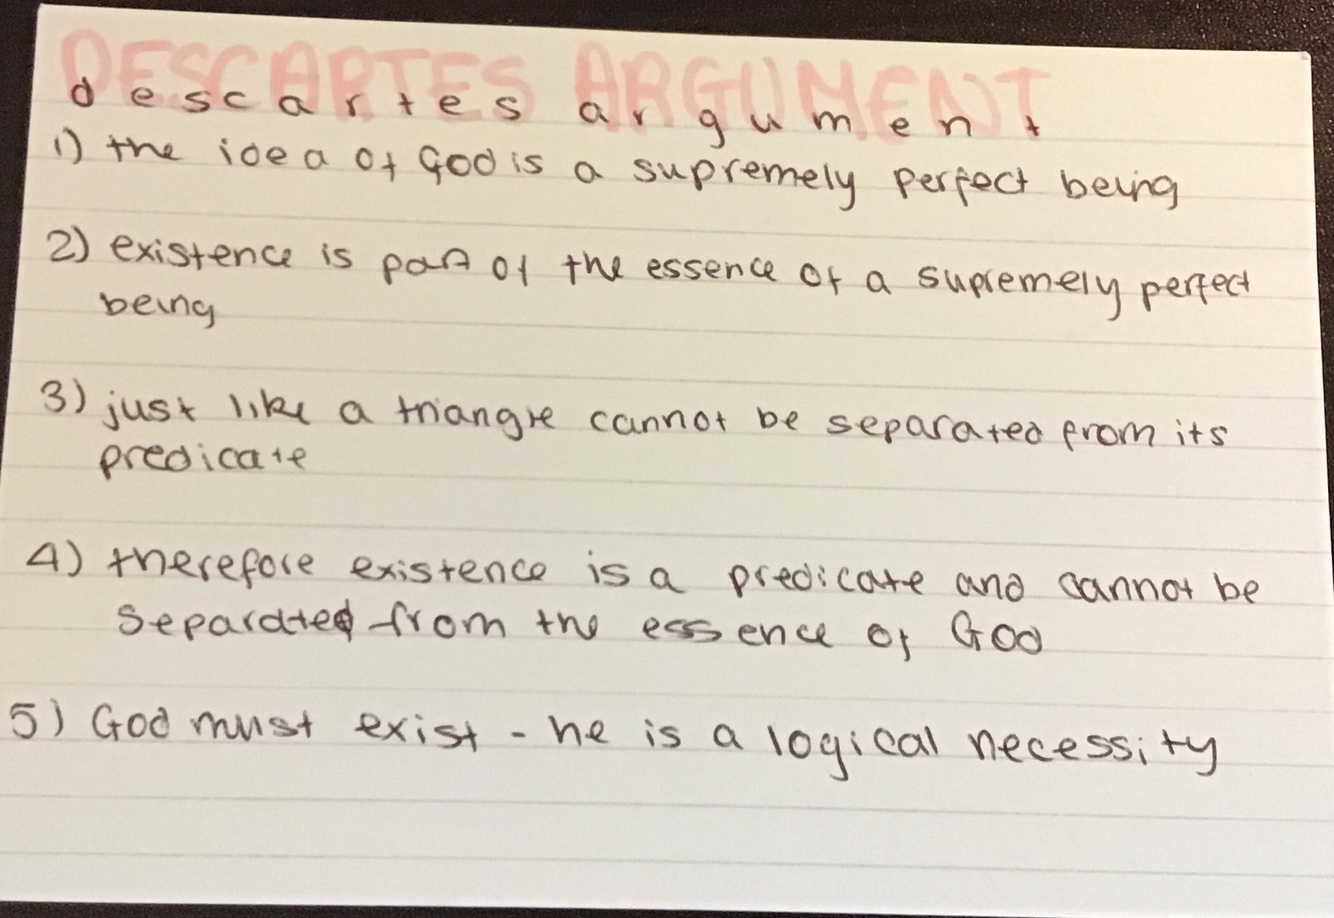 DESCARTES ARGUMENT
descartes argument
1) the idea of God is a supremely perfect being
2) existence is part of the essence of a supremely perfect
being
3) just like a triangle cannot be separated from its
predicate
4) therefore existence is a predicate and cannot be
separated from the essence of God
5) God must exist - he is a logical necessity